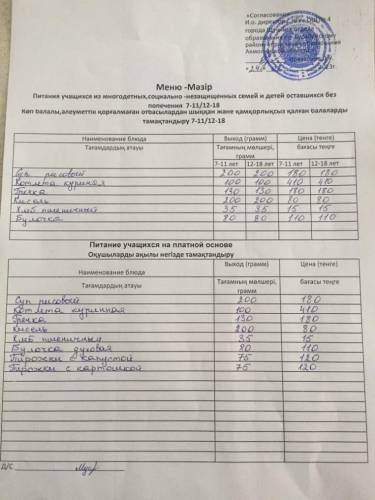 «Согласовано»
Меню -Мәзір
Питание учащихся из многодетных,социально -незащищенных семей и детей оставшихся без
попечения 7-11/12-18
Көп балалы,әлеуметтік қорғалмаған отбасылардан шыққан және қамқорлықсыз қалған балаларды
тамақтандыру 7-11/12-18
Наименование блюда Выход (грамм) Цена (тенге)
Тағамдардың атауы Тағамның мөлшері, грамм бағасы теңге
7-11 лет 12-18 лет 7-11 лет 12-18 лет
Суп рисовый 200 200 180 180
Котлета куриная 100 100 410 410
Гречка 130 130 180 180
Кисель 200 200 80 80
Хлеб пшеничный 35 35 15 15
Булочка 80 80 110 110
Питание учащихся на платной основе
Оқушыларды ақылы негізде тамақтандыру
Выход (грамм) Цена (тенге)
Наименование блюда
Тағамдардың атауы Тағамның мөлшері, грамм бағасы теңге
Суп рисовый 200 180
Котлета куринная 100 410
Гречка 130 180
Кисель 200 80
Хлеб пшеничный 35 15
Булочка духовая 80 110
Пирожки с капустой 75 120
Пирожки с картошкой 75 120
Д/С